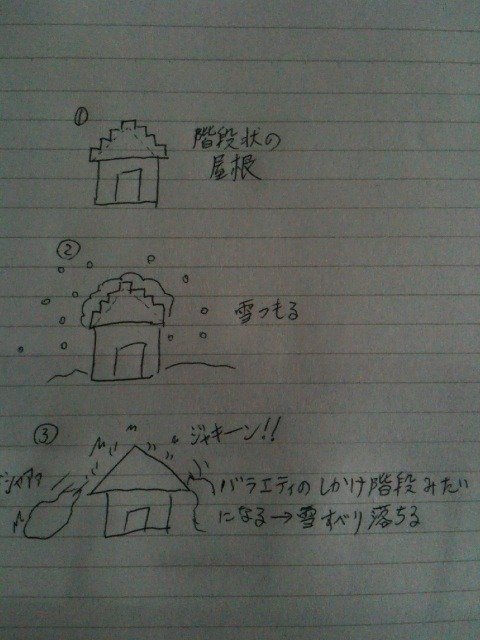 ①
階段状の
屋根
②
雪つもる
③
ジャキーン!!
バラエティのしかけ階段みたい
になる→雪すべり落ちる